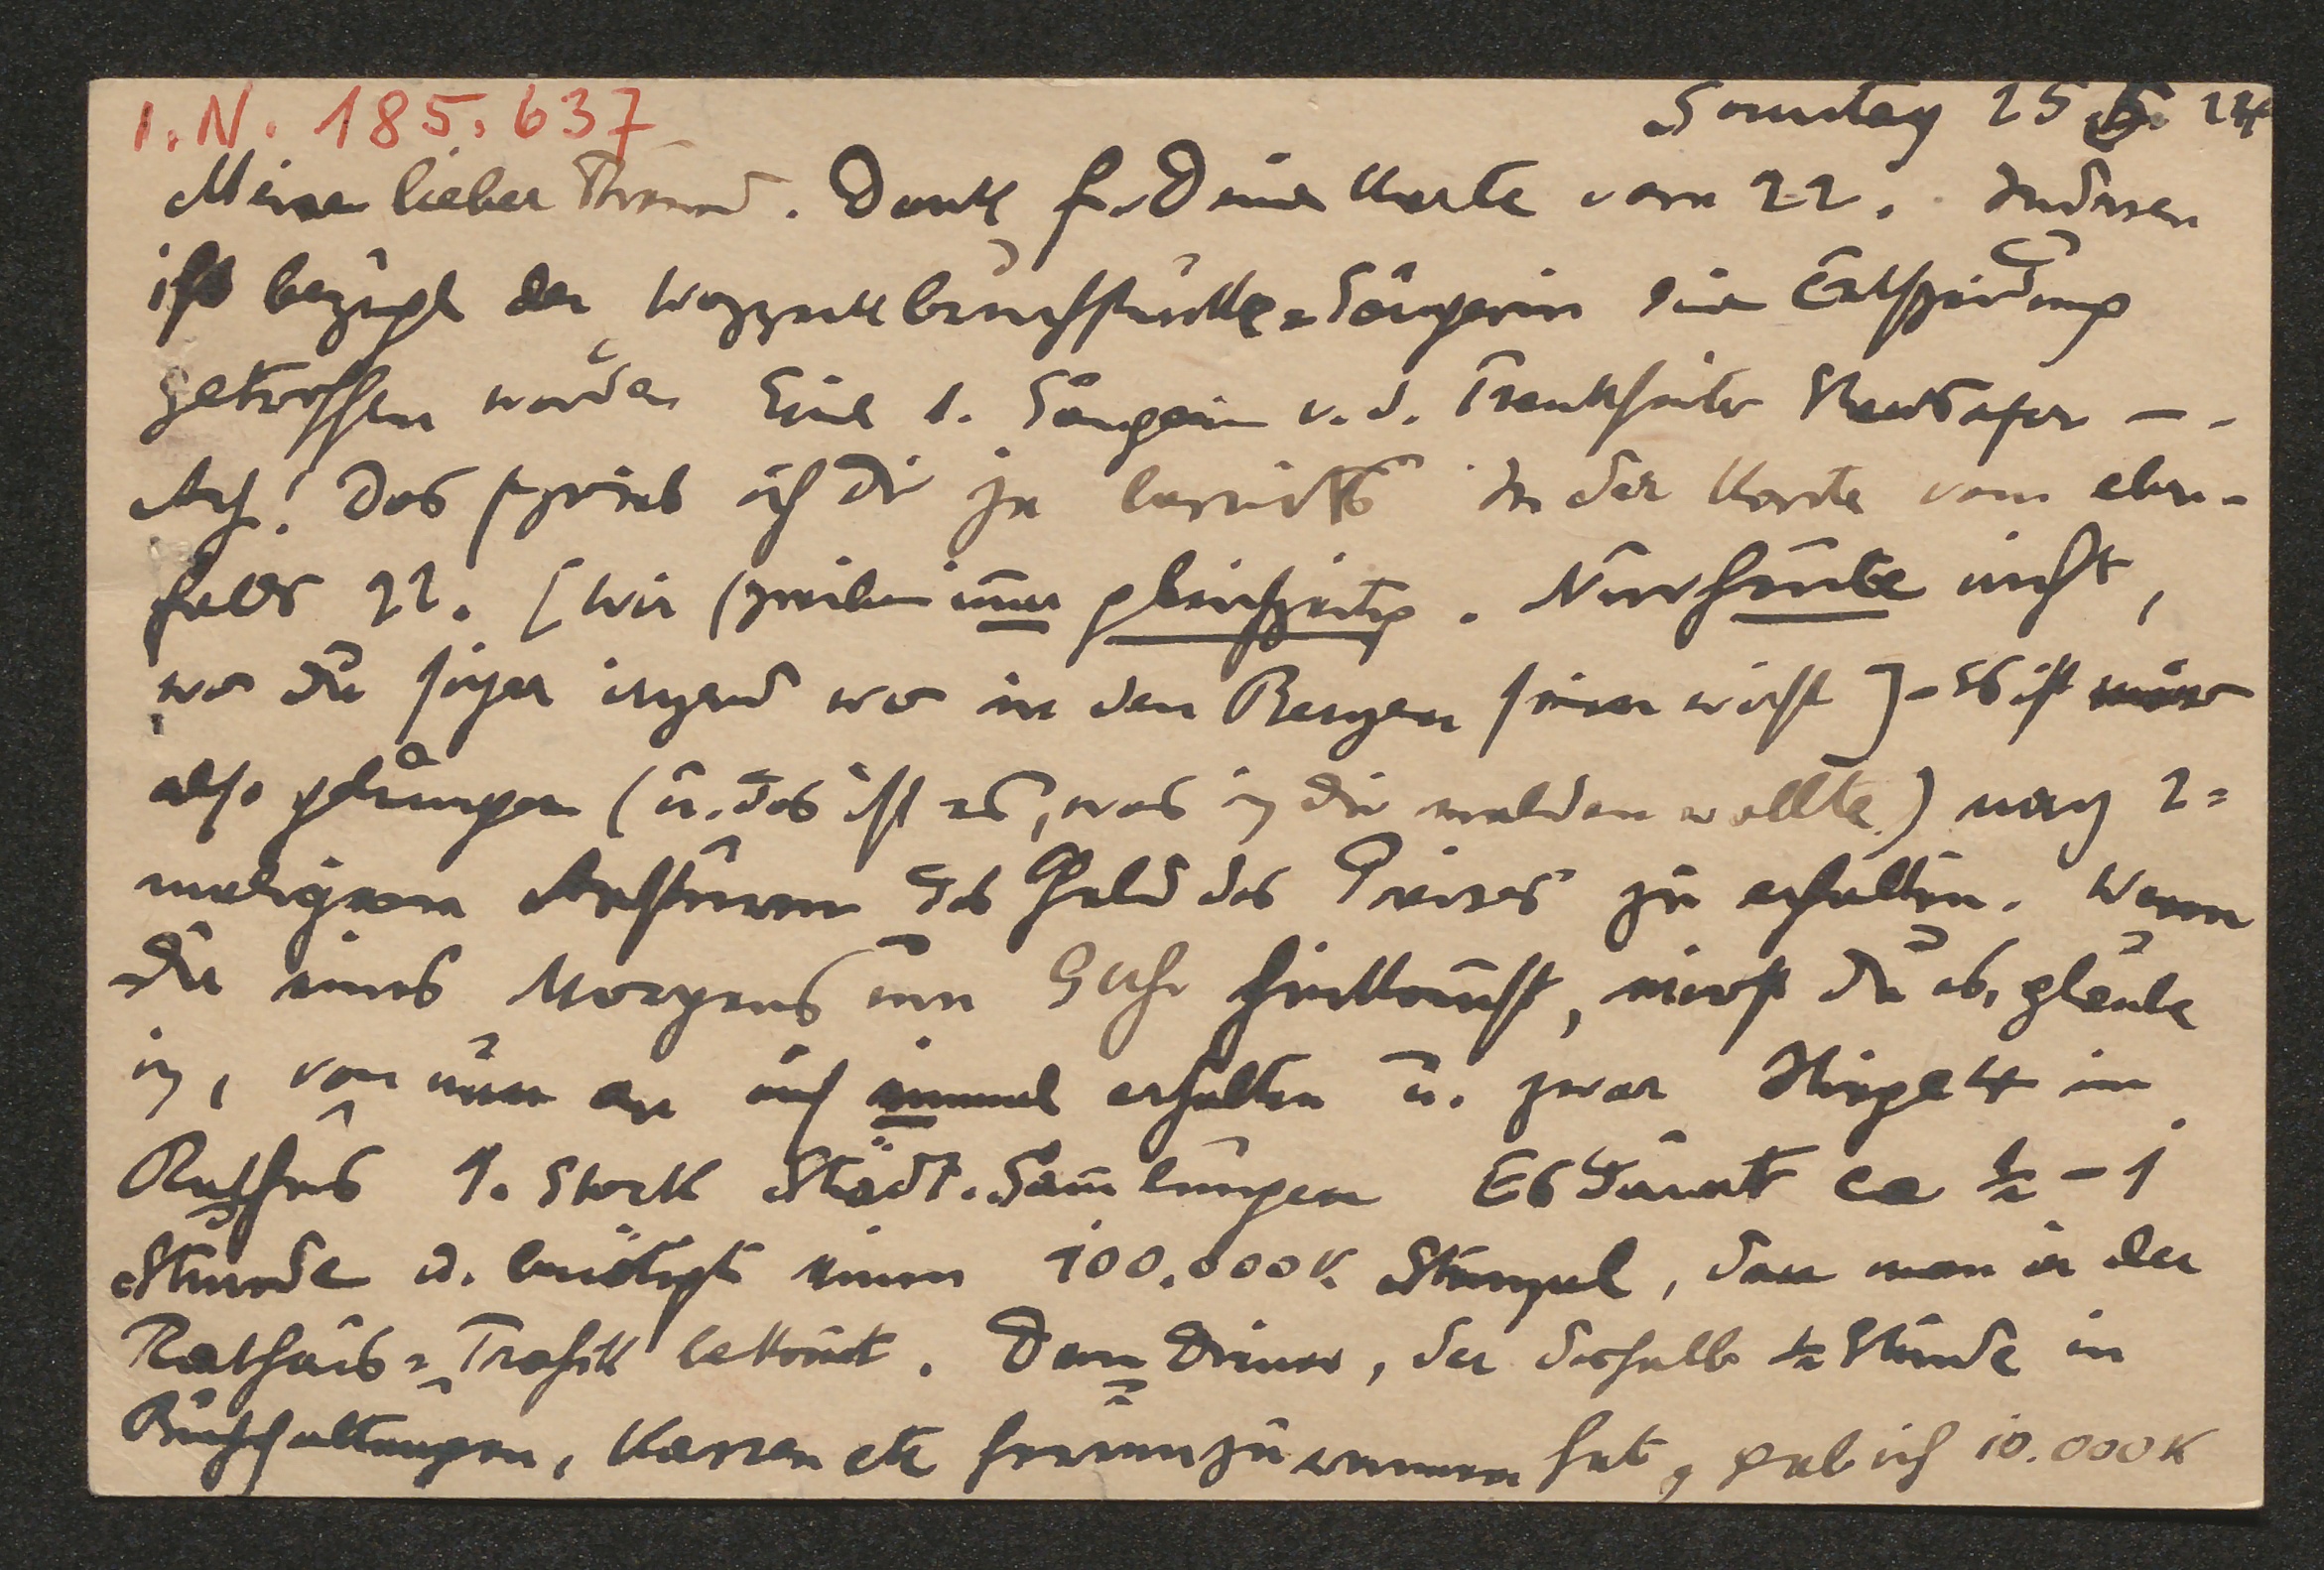 I.N. 185.637
Sonntag 25 5. 24
Mein lieber Freund. Dank f. Deine Karte vom 22. Indessen
ist bezügl der Wozzeckbruchstücke-Sängerin eine Entscheidung
getroffen worden Eine 1. Sängerin v. d. Frankfurter Staatsoper – -
Ach! Das schrieb ich Dir ja bereits in der Karte vom eben-
falls 22. [Wir schreiben im̅er gleichzeitig. Nur heute nicht,
wo Du sicher irgend wo in den Bergen sein wirst] – Es ist
also gelungen (u. das ist es, was ich Dir melden wollte) nach 2=
maligem Ansturm das Geld des Preises zu erhalten. Wenn
Du eines Morgens um 9 Uhr hinkom̅st, wirst Du es, glaube
ich, von nun an auf einmal erhalten u. zwar Stiege 4 im
Rathaus 1. Stock Städt. Sam̅lungen Es dauert ca ½ – 1
Stunde u. benötigt einen 100.000 K. Stempel, den man in der
Rathaus=Trafik bekom̅t. Dem Diener, der deshalb ½ Stunde in
Buchhaltungen, Kassen etc herumzurennen hat, gab ich 10.000 K